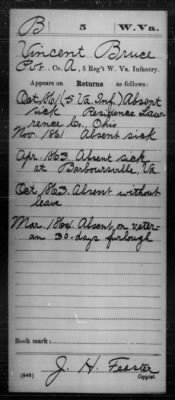 B 5 W. Va.
Vincent Bruce
Pvt., Co. A, 5 Reg't W. Va. Infantry.
Appears on Returns as follows:
Oct. 1861 (5 Va. Inf.) Absent
sick Residence Law
rence Co. Ohio
Nov. 1861 Absent sick
Apr. 1863. Absent sick
at Barboursville, Va
Oct 1863. Absent without
leave
Mar. 1864. Absent on veter-
an 30-days furlough
Book mark:
J. H. Feaster
(546) Copyist.